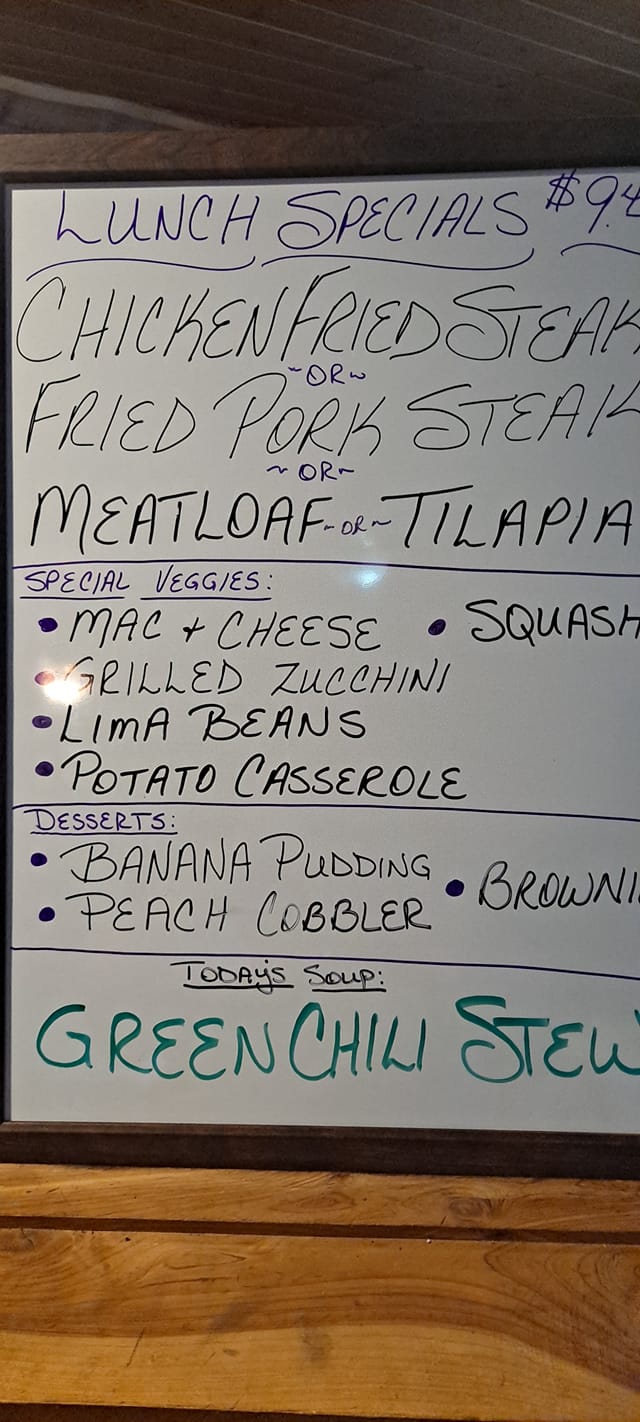 LUNCH SPECIALS $9.4
CHICKEN FRIED STEAK
~OR~
FRIED PORK STEAK
~OR~
MEATLOAF ~OR~ TILAPIA
SPECIAL VEGGIES:
• MAC + CHEESE • SQUASH
• GRILLED ZUCCHINI
• LIMA BEANS
• POTATO CASSEROLE
DESSERTS:
• BANANA PUDDING
• BROWNI
• PEACH COBBLER
TODAY'S SOUP:
GREEN CHILI STEW